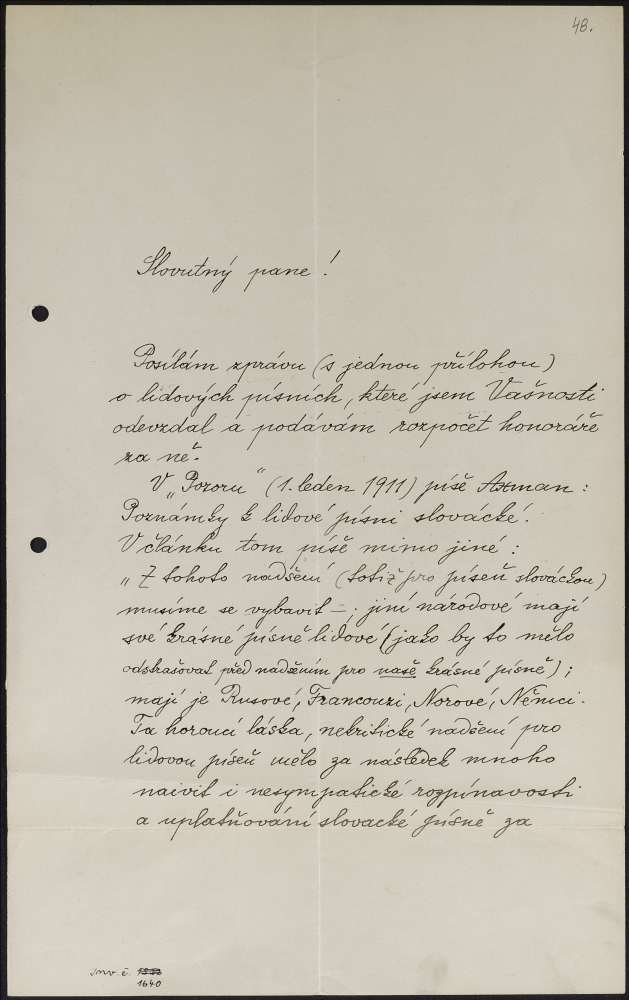 48.
Slovutný pane!
Posílám zprávu (s jednou přílohou)
o lidových písních, které jsem Vašnosti
odevzdal a podávám rozpočet honoráře
za ně.
V „Pozoru“ (1. leden 1911) píše Axman:
Poznámky k lidové písni slovácké.
V článku tom píše mimo jiné:
„Z tohoto nadšení (totiž pro píseň slováckou)
musíme se vybavit –; jiní národové mají
své krásné písně lidové (jako by to mělo
odstrašovat před nadšením pro naše krásné písně);
mají je Rusové, Francouzi, Norové, Němci.
Ta horoucí láska, nekritické nadšení pro
lidovou píseň mělo za následek mnoho
naivit i nesympatické rozpínavosti
a uplatňování slovacké písně za
inv. č.
1640